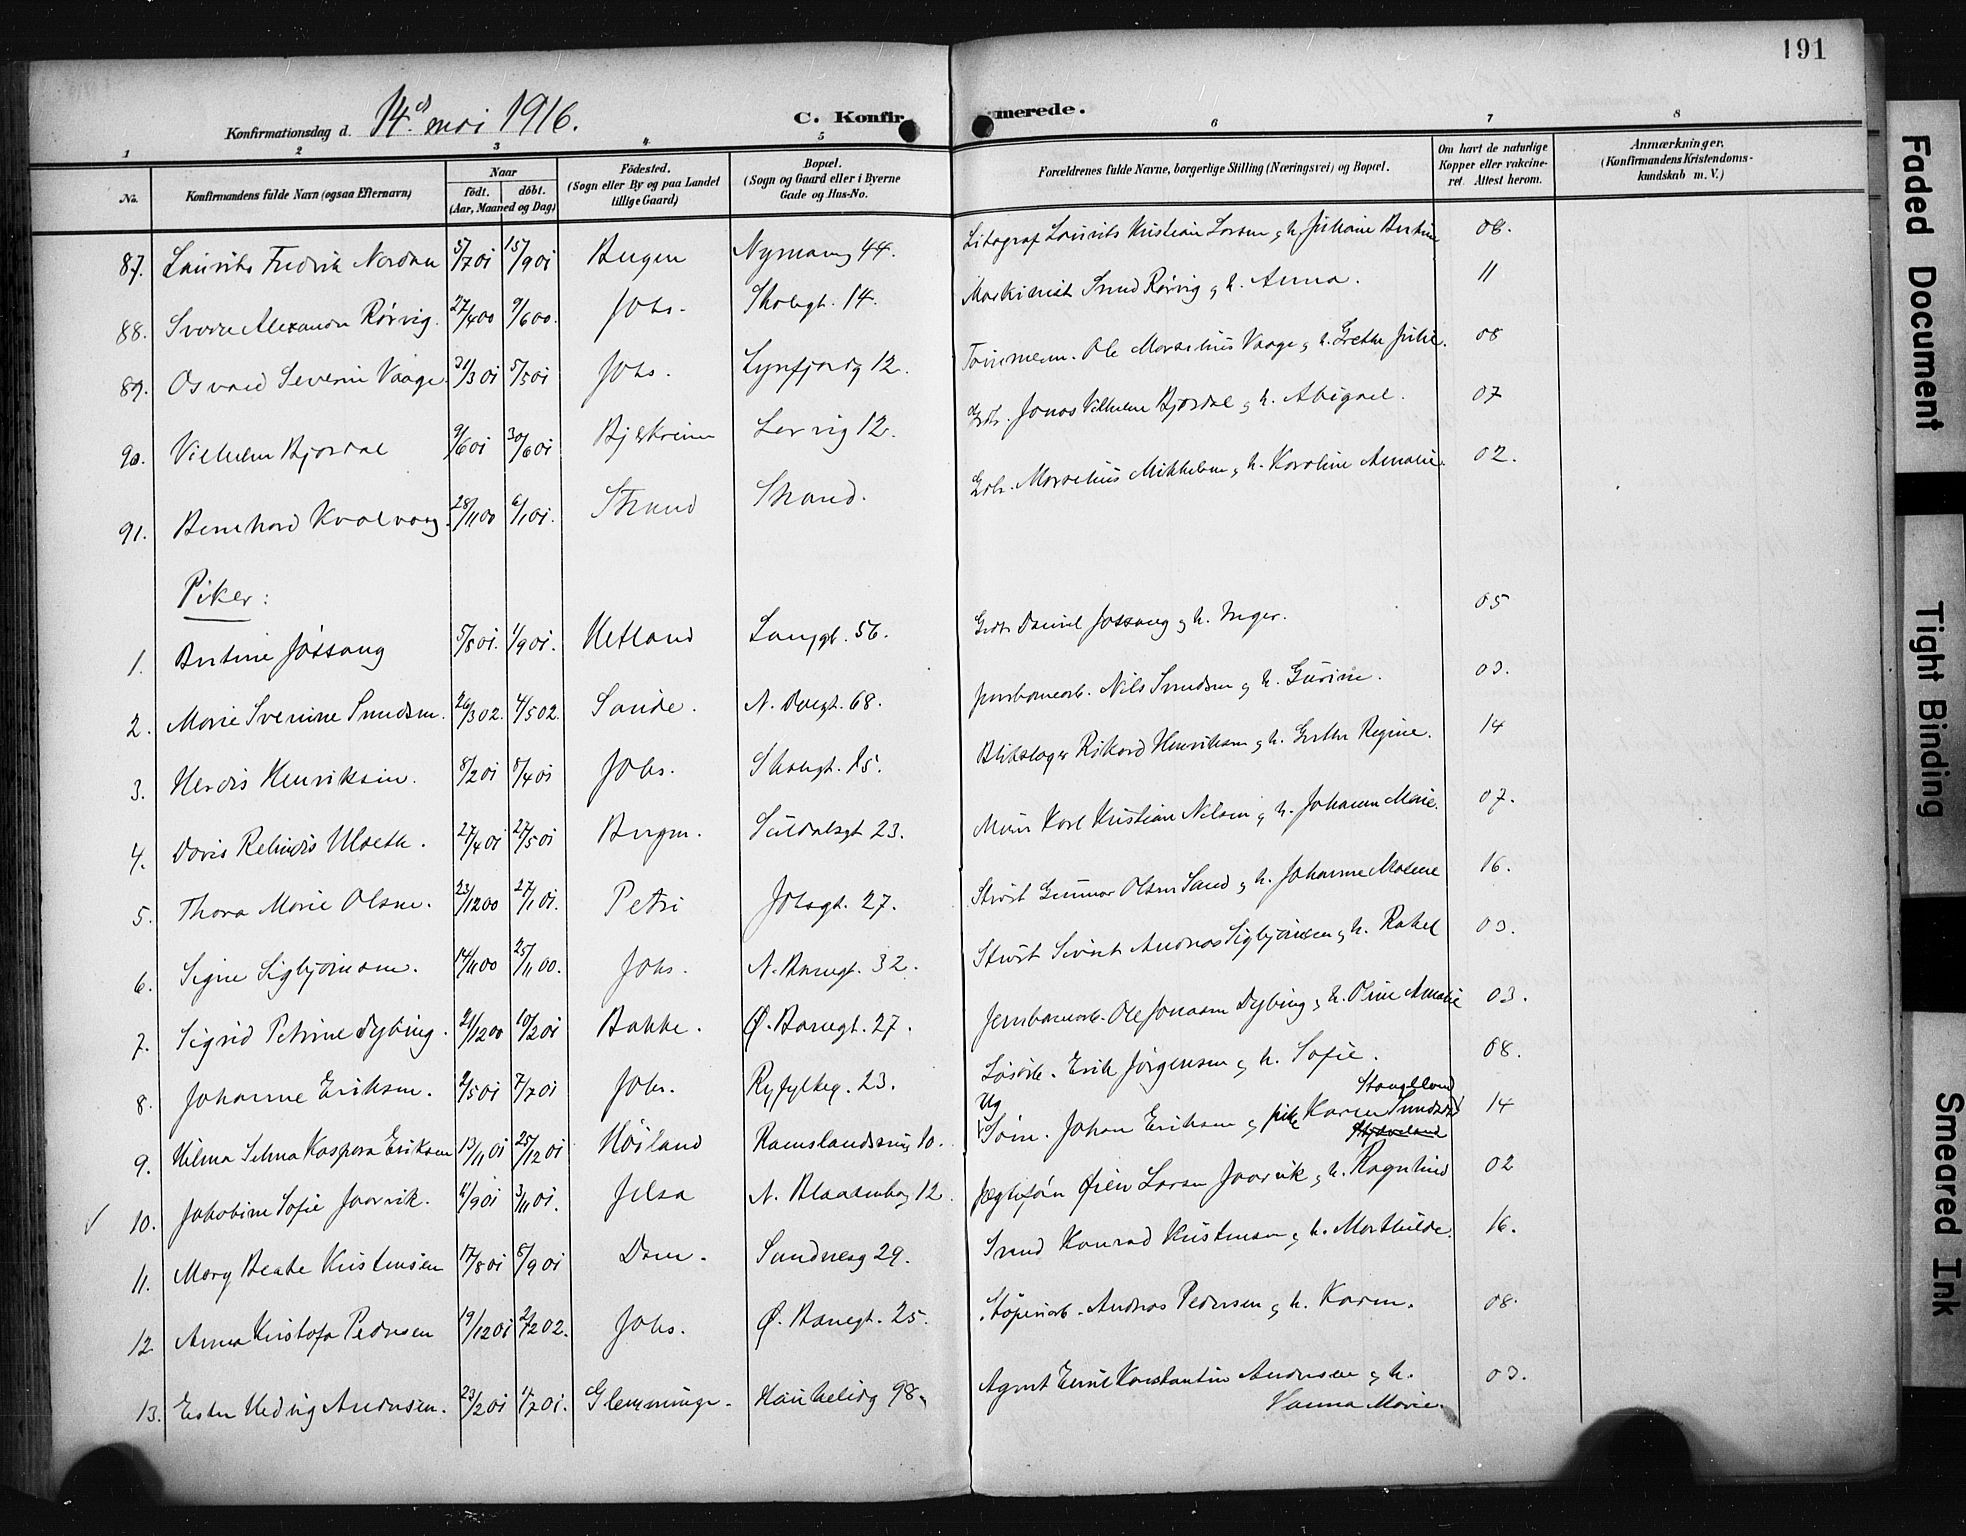 191
Konfirmationsdag d. 14de mai 1916. C. Konfirmerede.
1 2 3 4 5 6 7 8
No. Konfirmandens fulde Navn (ogsaa Efternavn) Naar födt. döbt. (Aar, Maaned og Dag) Födested. (Sogn eller By og paa Landet tillige Gaard) Bopæl. (Sogn og Gaard eller i Byerne Gade og Hus-No. Forældrenes fulde Navne, borgerlige Stilling (Næringsvei) og Bopæl. Om havt de naturlige Kopper eller vakcineret. Attest herom. Anmærkninger. (Konfirmandens Kristendomskundskab m. V.)
87. Laurits Fredrik 5/7 01 15/9 01 Bergen 44. Litograf Laurits Kristian Larsen g h. Juliane Bertine 06.
88. Sverre Alexander Rørvig. 27/4 00 9/6 00. Johs. Skolegt. 14. Maskinist Svend Rørvig g h. Anna. 11
89. Osvald Severin Vaage. 31/3 01 5/5 01 Johs. 12. Tømmerm. Ole Marselius Vaage g h. Grethe Julie. 08
90. Vilhelm Bjordal 9/6 01 30/6 01 Bjerkreim Lervig 12. Jonas Vilhelm Bjordal g h. Abigael. 07
91. Bernhard Kvalvaag. 28/11 00 6/1 01. Strand Strand. Marselius Mikkelsen g h. Karoline Amalie. 02.
Piker:
1. Bertine Jøssang 5/8 01. 1/9 01. Hetland Langgt. 56. Daniel Jøssang g h. Inger. 05
2. Marie Sverine Svendsen. 26/3 02. 4/5 02. Sande. 68. Jernbanearb. Nils Svendsen g h. Gurine. 03.
3. Herdis Henriksen. 8/2 01 8/4 01 Johs. 15. Blikslager Rikard Henriksen g h. Grethe Regine. 14
4. Doris 27/4 01 27/5 01 Bergen. Suldalsgt 23. Murer Karl Kristian Nilsen g h. Johanne Marie. 07.
5. Thora Marie Olsen. 23/12 00 27/1 01. Petri Johsgt. 27. Gunnar Olsen Sand g h. Johanne Malene 16.
6. Signe Sigbjørnsen. 14/11 00 25/11 00. Johs. N. Banegt. 32. Sivert Andreas Sigbjørnsen g h. Rakel 03.
7. Sigrid Petrine Dybing. 21/12 00 10/2 01 Bakke. Ø. Banegt. 27. Jernbanearb. Ole Jonassen Dybing g h. Oline Amalie 03.
8. Johanne Eriksen. 2/5 01 7/7 01 Johs. Ryfylkeg. 23. Løsarb. Erik Jørgensen g h. Sofie. 08.
9. Hilma Selma Kaspara Eriksen 13/11 01 25/12 01 Høiland 10. Ug Søm. Johan Eriksen g pike Karen 14
10. Jakobine Sofie Jaarvik. 3/11 01. Jelsa N. Blaasenbog 12. Øien Larsen Jaarvik g h. Ragnhild 02
11. Mary Beate Kristensen 17/8 01 8/9 01 Dom. Sandnesg 29. Konrad Kristensen g h. 16.
12. Anna Kristofa Pedersen 19/12 01 2/2 02. Johs. Ø. Banegt. 25. Støperiarb. Andreas Pedersen g h. Karen. 08.
13. Ester Hedvig Andersen. 23/2 01 1/7 01. Glemminge. Haukelidg 98. Agent Emil Konstantin Andersen g h.
Hanna Marie. 03.
Faded Document
Tight Binding
Smeared Ink